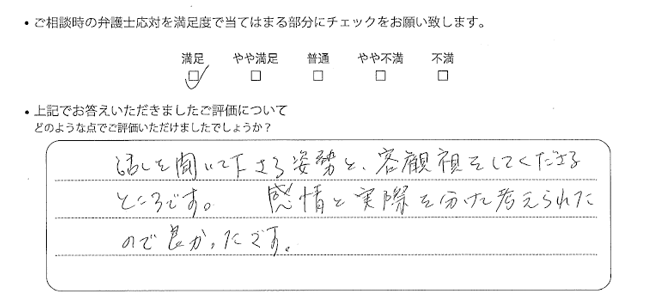 ・ご相談時の弁護士応対を満足度で当てはまる部分にチェックをお願い致します。
満足 やや満足 普通 やや不満 不満
・上記でお答えいただきましたご評価について
どのような点でご評価いただけましたでしょうか？
話しを聞いて下さる姿勢と、客観視をしてくださる
ところです。 感情と実際を分けて考えられた
ので良かったです。